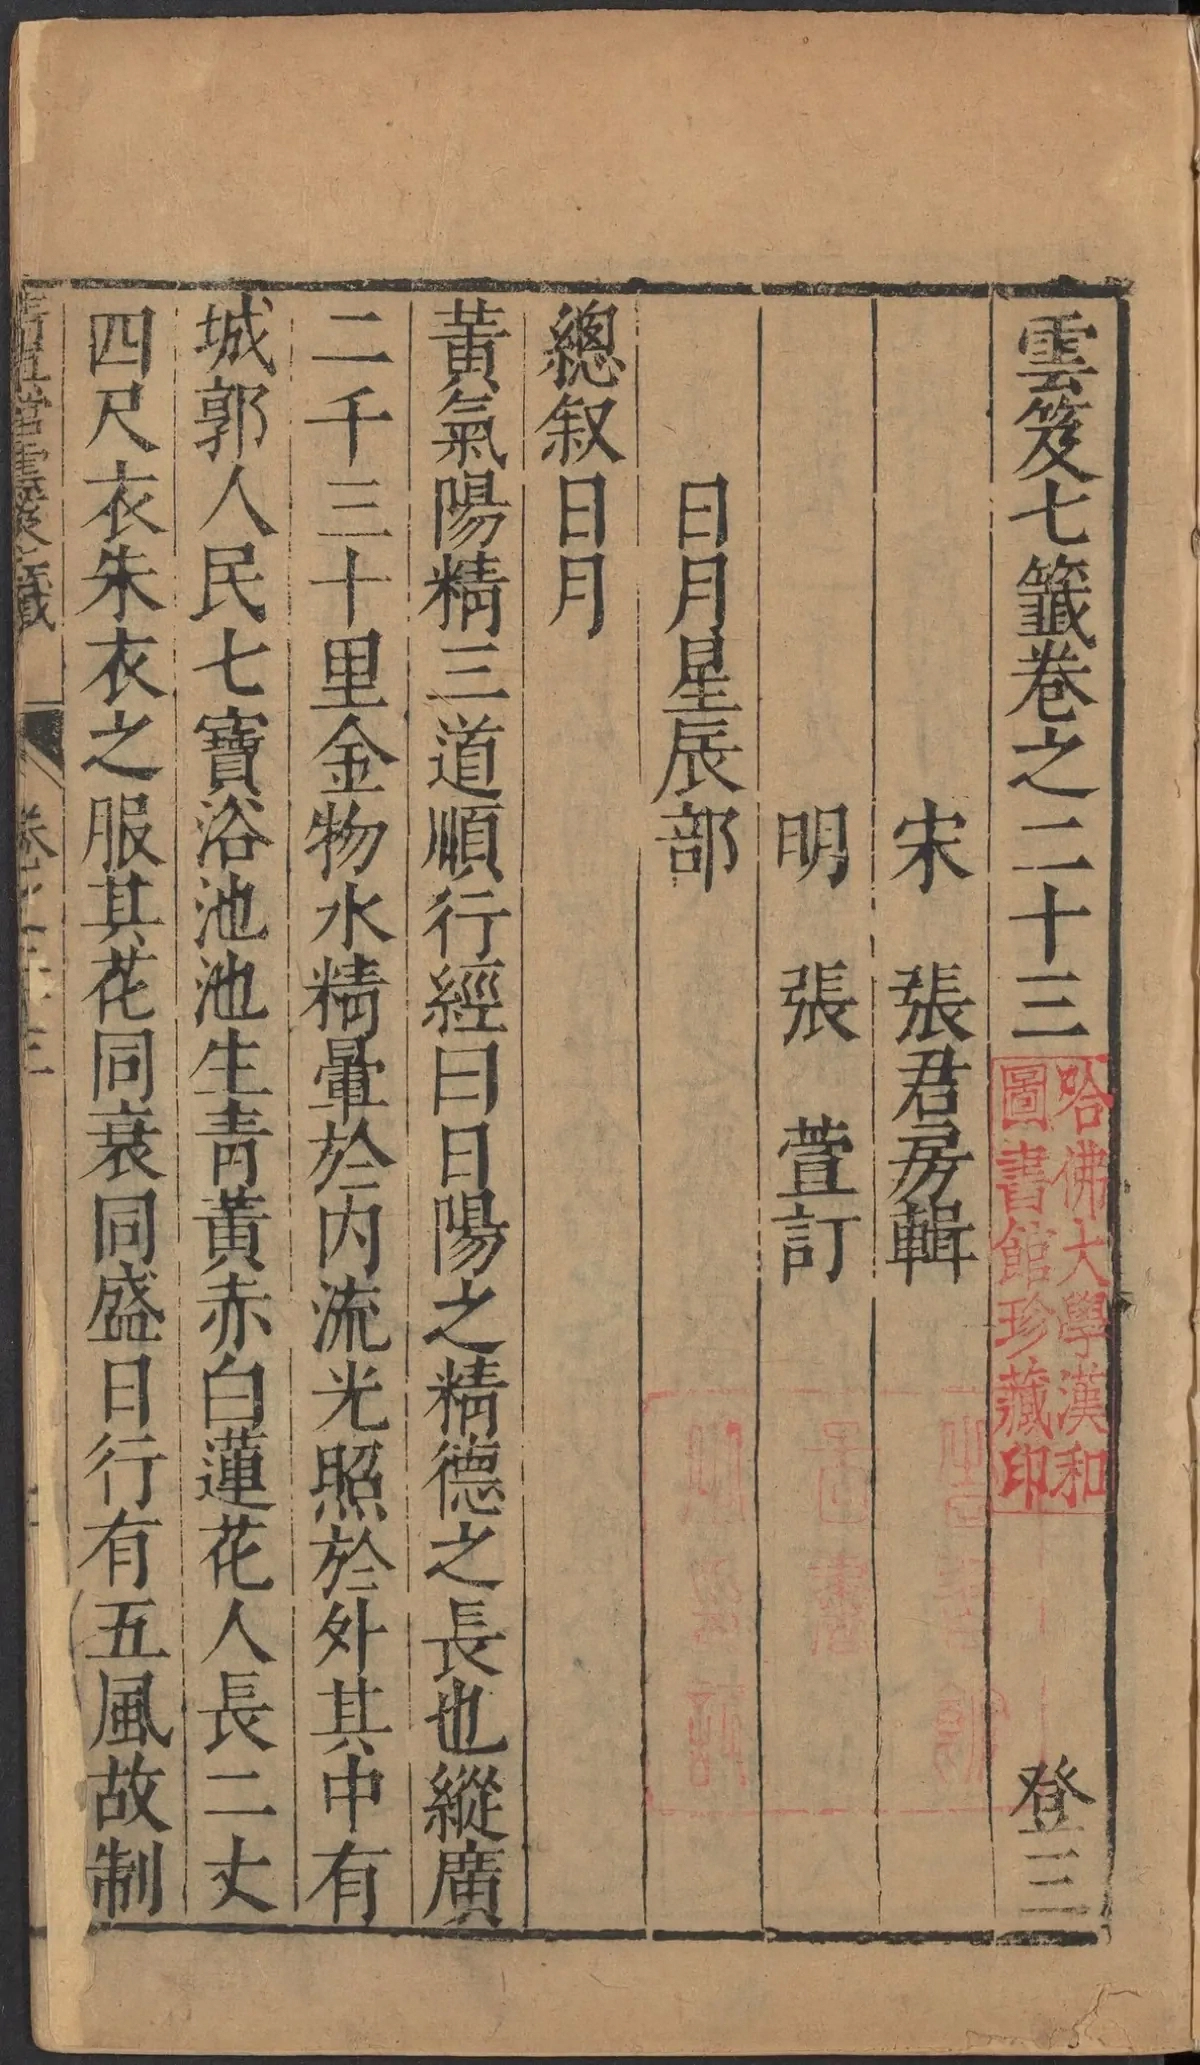 雲笈七籤卷之二十三 登三
宋 張君房輯
明 張 萱訂
日月星辰部
總叙日月
黃氣陽精三道順行經曰日陽之精德之長也縱廣
二千三十里金物水精暈於内流光照於外其中有
城郭人民七寶浴池池生青黃赤白蓮花人長二丈
四尺衣朱衣之服其花同衰同盛日行有五風故制
哈佛大學漢和
圖書館珍藏印